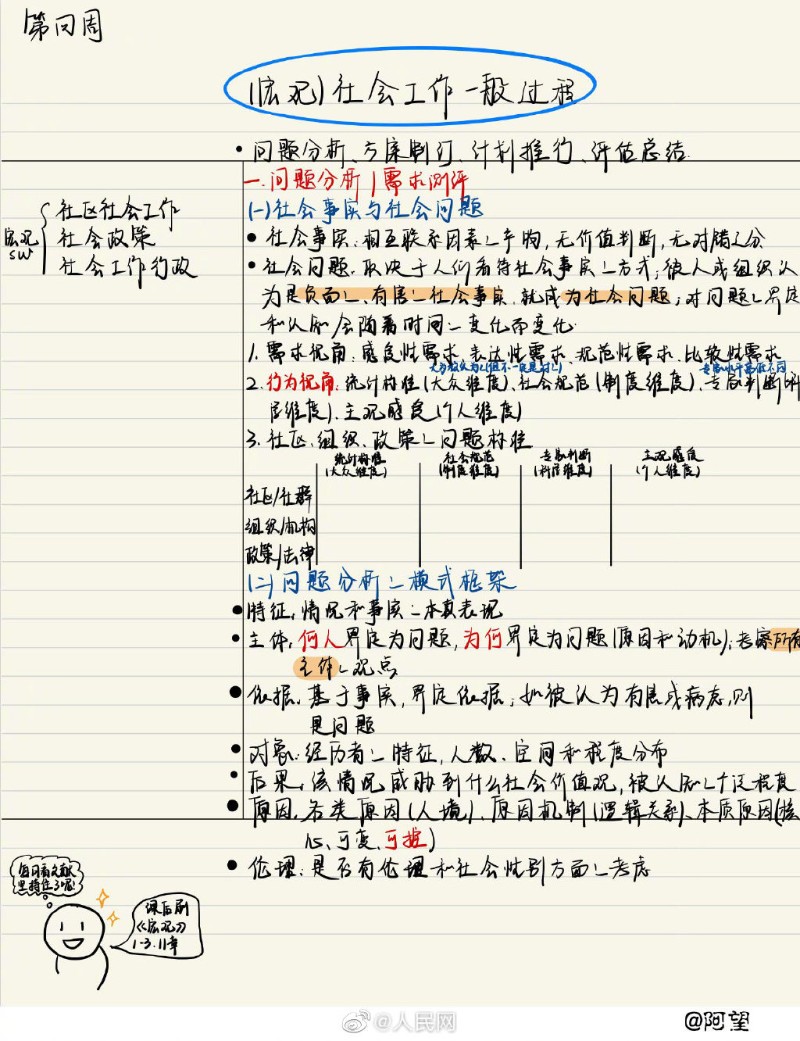 第四周
(宏观)社会工作一般过程
• 问题分析、方案制订、计划推行、评估总结
宏观SW
社区社会工作
社会政策
社会工作行政
一.问题分析/需求测评
(一)社会事实与社会问题
• 社会事实:相互联系因素~产物,无价值判断,无对错之分
• 社会问题:取决于人们看待社会事实~方式;被人或组织认
为是负面~、有害~社会事实,就成为社会问题;对问题~界定
和认知会随着时间~变化而变化
1. 需求视角:感觉性需求、表达性需求、规范性需求、比较性需求
2. 行为视角:统计标准(大众维度)、社会规范(制度维度)、专家判断(科
学维度)、主观感觉(个人维度)
3. 社区、组织、政策~问题标准
统计标准 社会规范 专家判断 主观感觉
(大众维度) (制度维度) (科学维度) (个人维度)
社区/社群
组织/机构
政策/法律
(二)问题分析~模式框架
• 特征:情况和事实~本真表现
• 主体:何人界定为问题,为何界定为问题(原因和动机);考察所有
主体~观点
• 依据:基于事实,界定依据;如被认为有害或病态,则
是问题
• 对象:经历者~特征,人数、空间和程度分布
• 后果:该情况威胁到什么社会价值观,被认知~广泛程度
• 原因:各类原因(人境)、原因机制(逻辑关系)、本质原因(核
心、可变、可推)
• 伦理:是否有伦理和社会性别方面~考虑
课后刷
《宏观》
1-3.11章
@人民网
@阿望